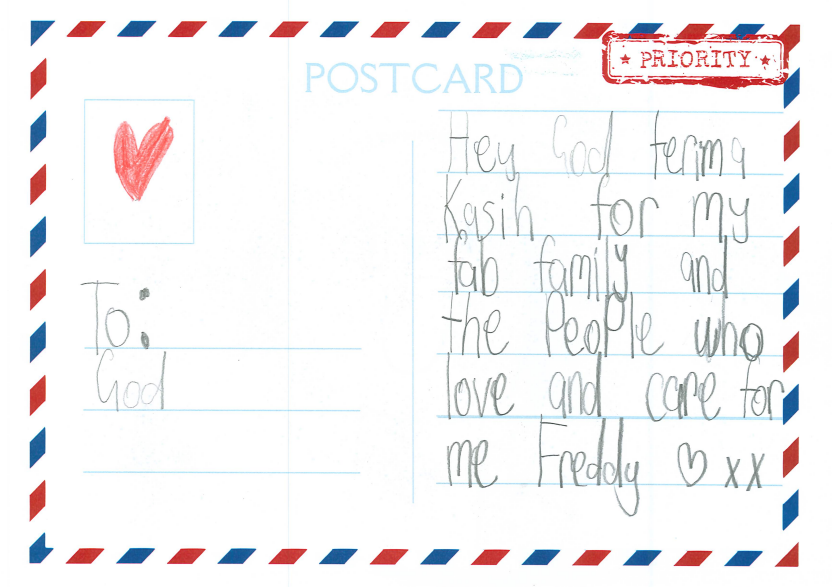 POSTCARD
★ PRIORITY ★
To:
God
Hey God terima
Kasih for my
fab family and
the People who
love and care for
me Freddy ♡ xx